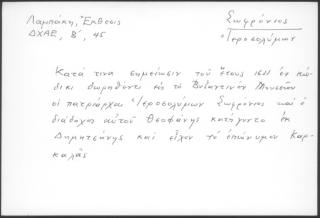 Λαμπάκη, Ἔκθεσις
ΔΧΑΕ, Β΄, 45
Σωφρόνιος
Ἱεροσολύμων
Κατά τινα σημείωσιν τοῦ ἔτους 1611 ἐν κώ-
δικι δωρηθέντι εἰς τὸ Βυζαντινὸν Μουσεῖον
οἱ πατριάρχαι Ἱεροσολύμων Σωφρόνιος καὶ ὁ
διάδοχος αὐτοῦ Θεοφάνης κατήγοντο ἐκ
Δημητσάνης καὶ εἶχον τὸ ἐπώνυμον Καρ-
καλᾶς